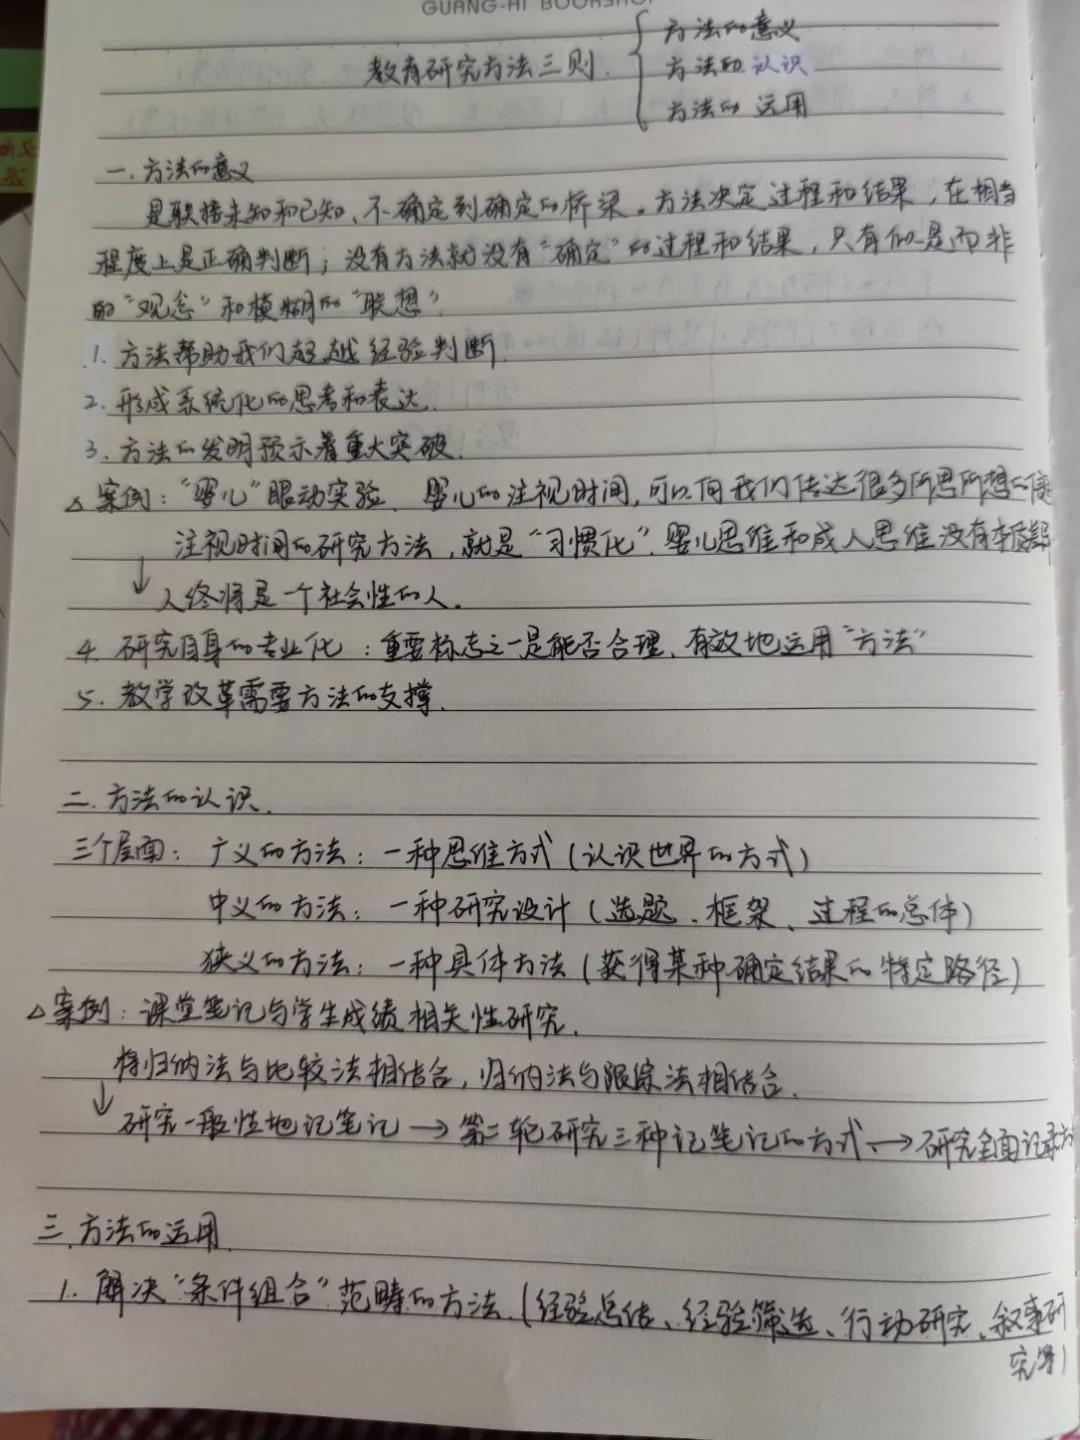 GUANG-HI BOOKSHOP
教育研究方法三则
方法的意义
方法的认识
方法的运用
一.方法的意义
是联接未知和已知、不确定到确定的桥梁。方法决定过程和结果，在相当
程度上是正确判断；没有方法就没有“确定”的过程和结果，只有似是而非
的“观念”和模糊的“联想”
1. 方法帮助我们超越经验判断.
2. 形成系统化的思考和表达.
3. 方法的发明预示着重大突破.
△案例：“婴儿”眼动实验. 婴儿的注视时间,可以向我们传达很多所思所想的信
注视时间的研究方法，就是“习惯化”.婴儿思维和成人思维没有本质
↓人终将是一个社会性的人.
4. 研究自身的专业化：重要标志之一是能否合理、有效地运用“方法”
5. 教学改革需要方法的支撑.
二.方法的认识.
三个层面：广义的方法：一种思维方式(认识世界的方式)
中义的方法：一种研究设计(选题、框架、过程的总体)
狭义的方法：一种具体方法(获得某种确定结果的特定路径)
△案例：课堂笔记与学生成绩相关性研究.
将归纳法与比较法相结合,归纳法与跟踪法相结合.
↓研究一般性地记笔记→第二轮研究三种记笔记的方式、→研究全面记录方
三.方法的运用.
1. 解决“条件组合”范畴的方法.(经验总结、经验筛选、行动研究、叙事研
究等)